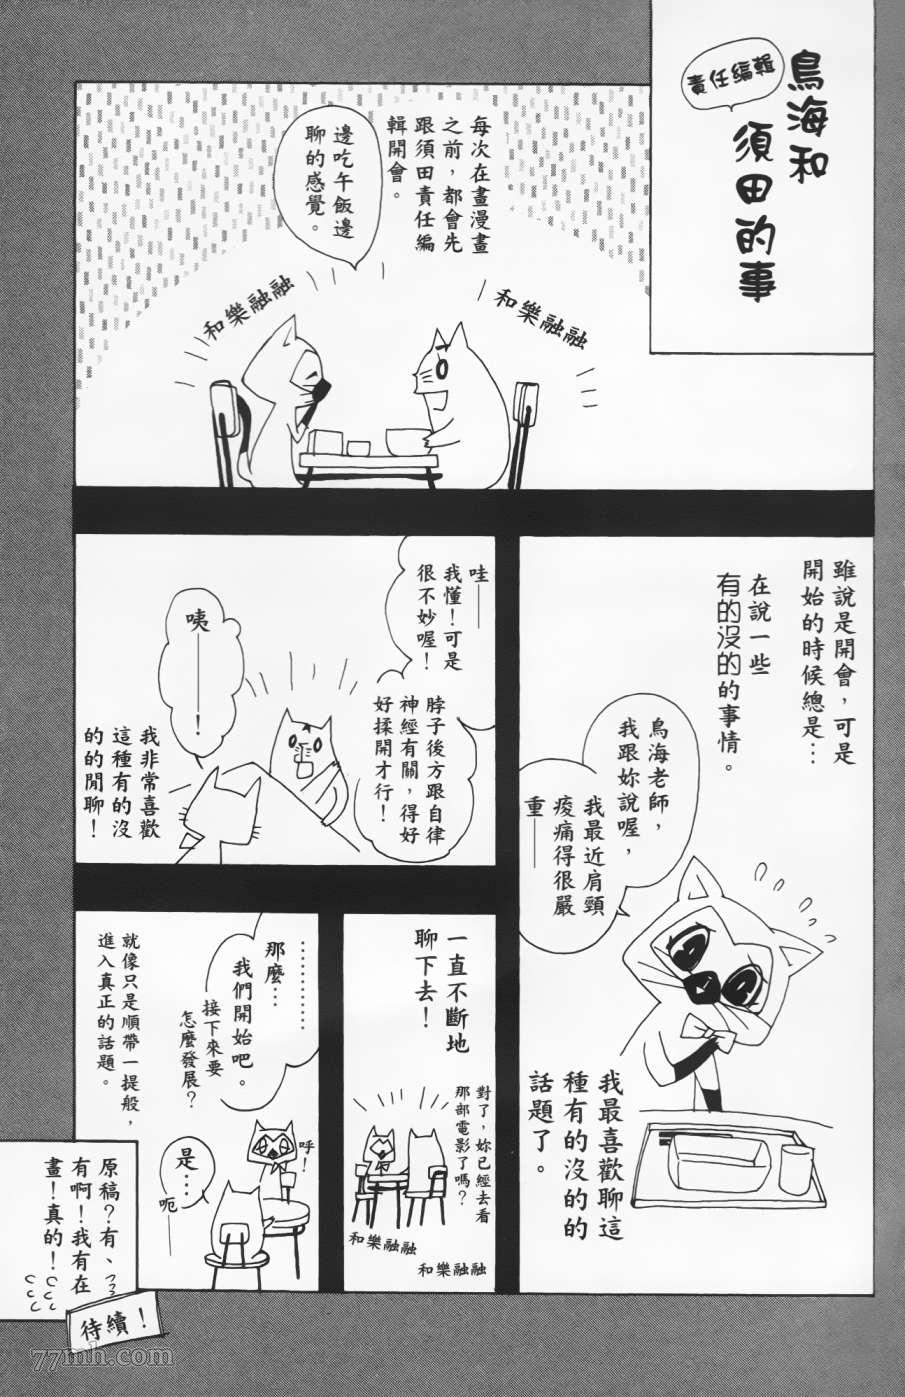 鳥海和
責任編輯
須田的事
每次在畫漫畫
之前，都會先
跟須田責任編
輯開會。
邊吃午飯邊
聊的感覺。
和樂融融
和樂融融
雖說是開會，可是
開始的時候總是…
在說一些
有的沒的的事情。
鳥海老師，
我跟妳說喔，
我最近肩頸
痠痛得很嚴
重——
我最喜歡聊這
種有的沒的的
話題了。
哇——
我懂！可是
很不妙喔！
脖子後方跟自律
神經有關，得好
好揉開才行！
咦——！
我非常喜歡
這種有的沒
的的閒聊！
一直不斷地
聊下去！
對了，妳已經去看
那部電影了嗎？
和樂融融
和樂融融
…………
那麼…
我們開始吧。
接下來要
怎麼發展？
呼！
是…
呃——
就像只是順帶一提般，
進入真正的話題。
原稿？有、
有啊！我有在
畫！真的！
待續！
77mh.com